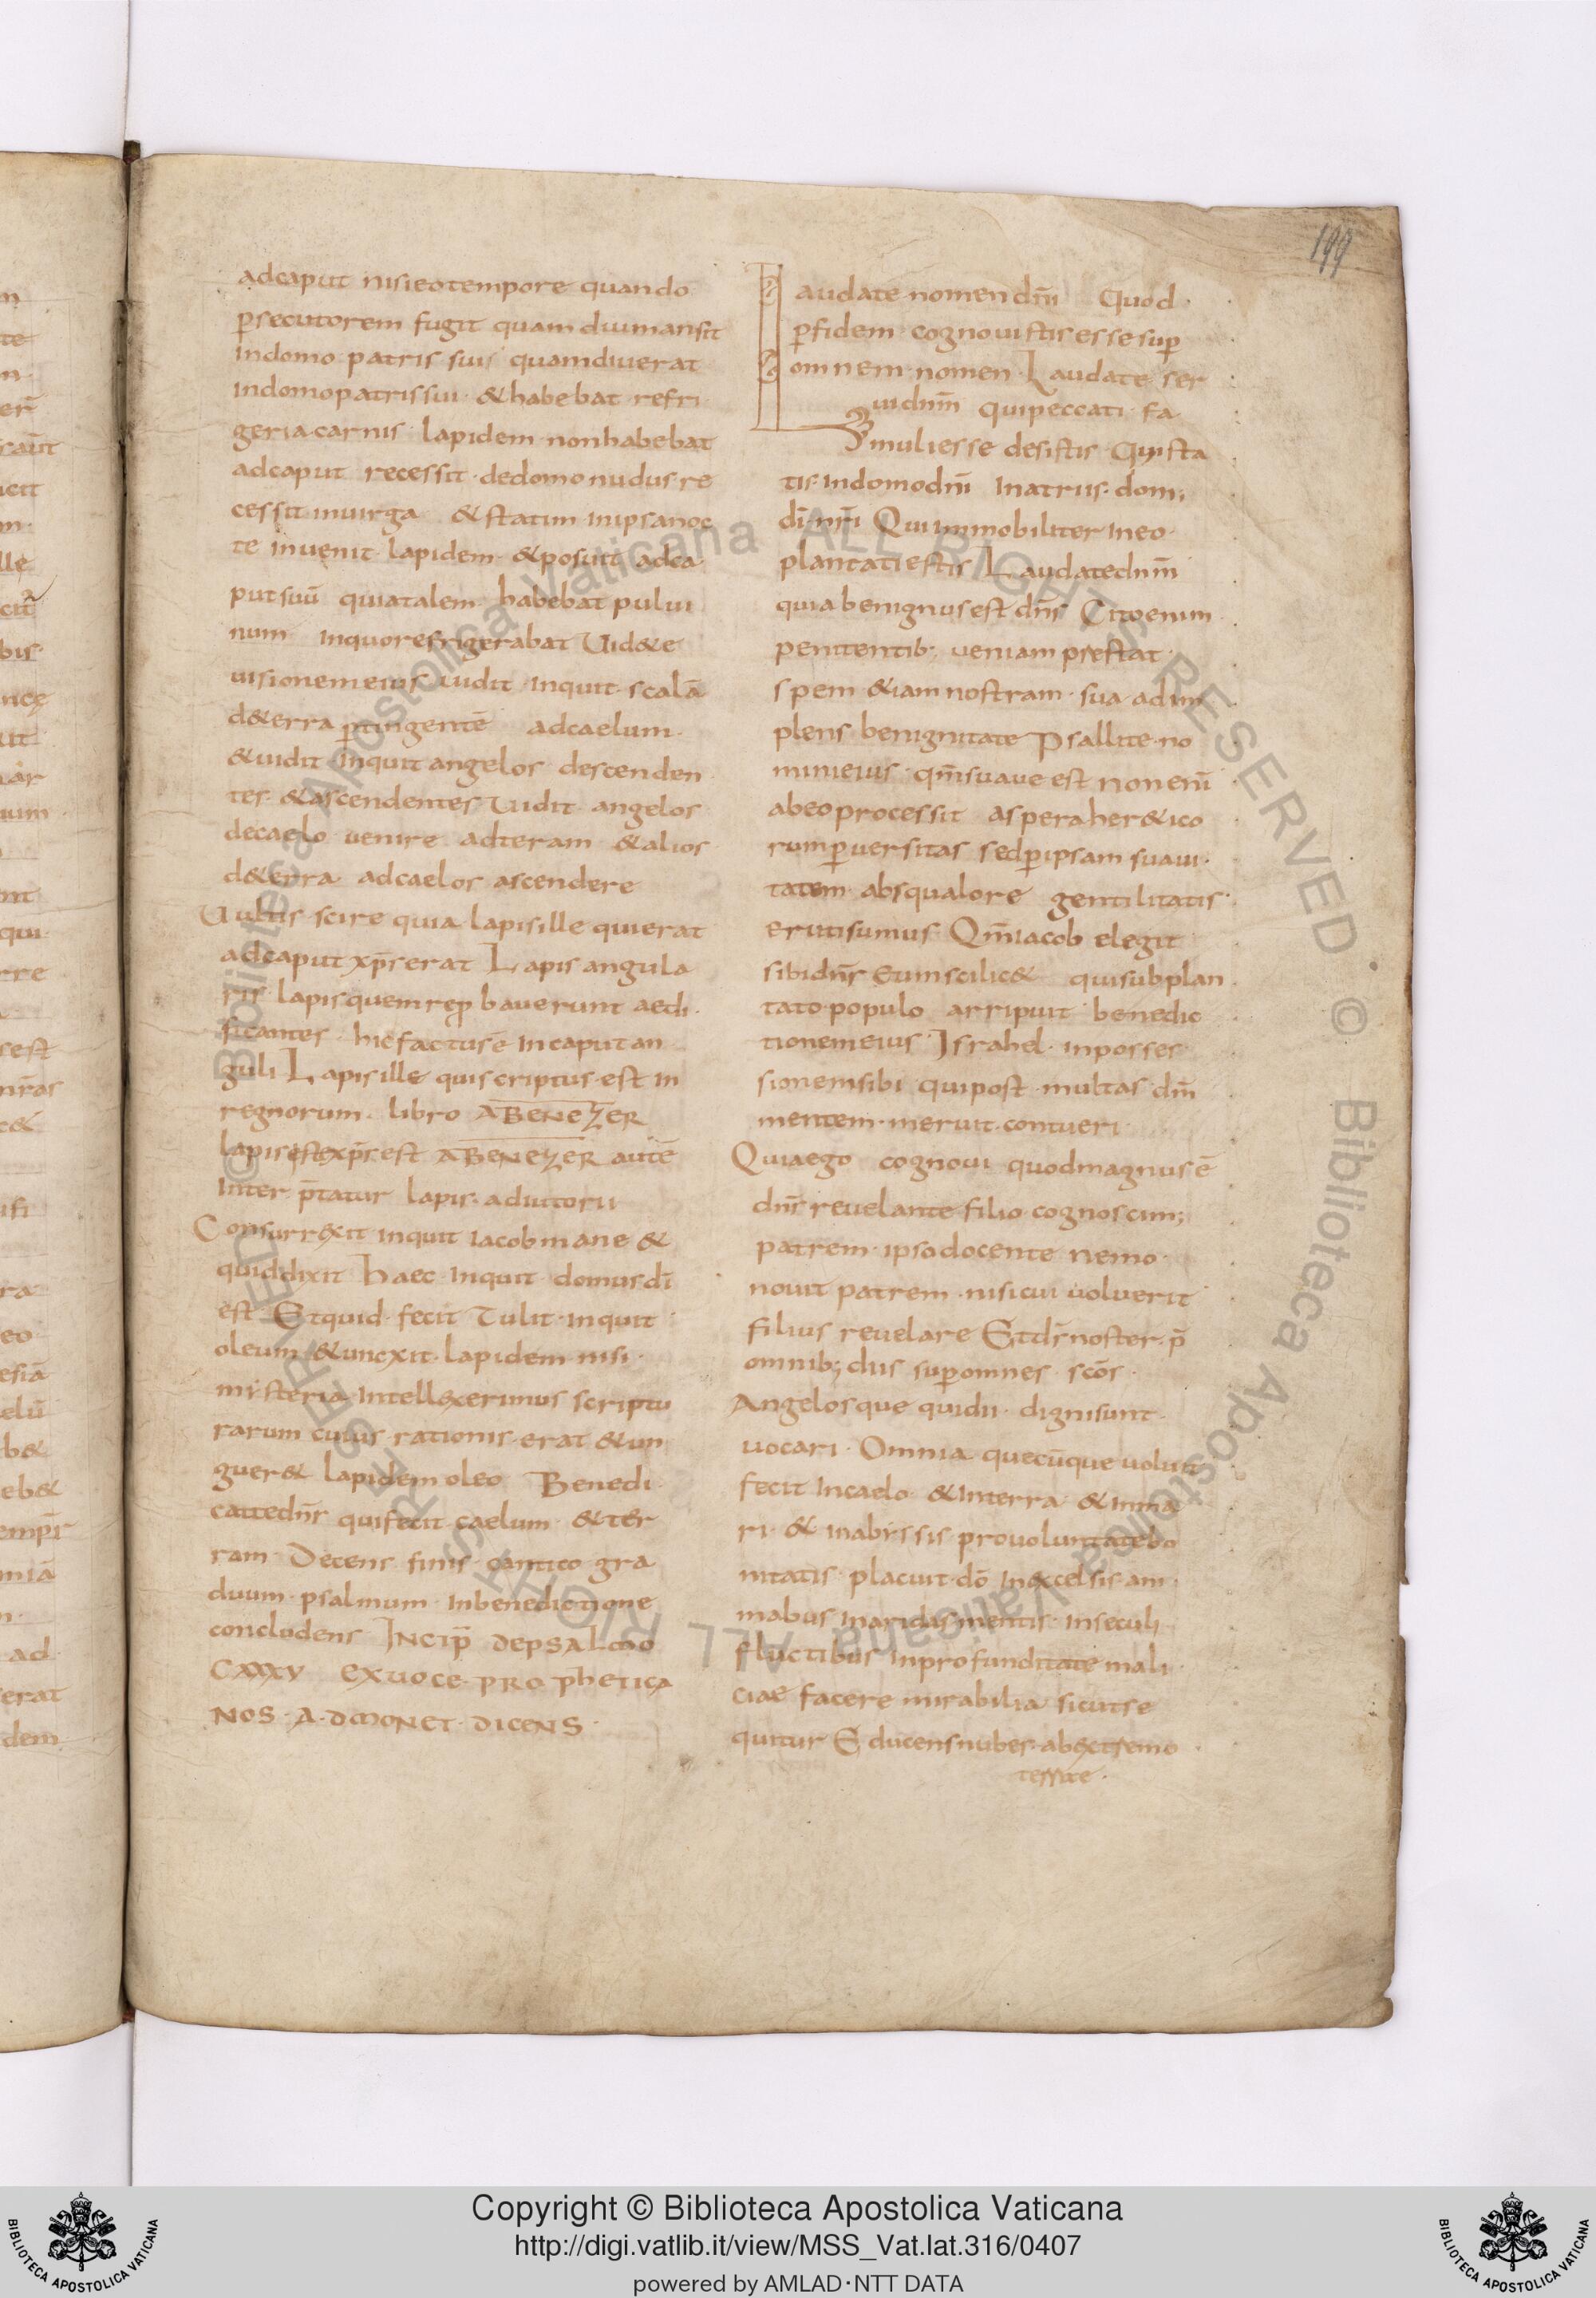 199
adcaput nisieotempore quando
p̄secutorem fugit quamdiumansit
indomo patris sui quamdiuerat
indomopatrissui · &habebat refri
geria carnis lapidem nonhabebat
adcaput recessit · dedomo nudus re
cessit inuirga &statim inipsanoc
te inuenit lapidem · &posuit adca
putsuū quiatalem habebat pului
num inquorefrigerabat Uid&e
uisionemeius uidit inquit scalā
d&erra p̄tingentē adcaelum ·
&uidit inquit angelos descenden
tes · &ascendentes Uidit angelos
decaelo uenire adterram &alios
d&erra adcaelos ascendere
Uultis scire quia lapisille quierat
adcaput xp̄serat Lapis angula
ris lapisquemrep̄bauerunt aedi
ficantes · hicfactusē incaputan
guli Lapisille quiscriptus est in
regnorum · libro ABENEZER
lapisestexp̄sest ABENEZER autē
inter p̄tatur lapis · adiutorii
Consurrexit inquit iacobmane &
quiddixit haec inquit domusdī
est Etquid fecit Tulit inquit
oleum &uncxit lapidem nisi ·
misteria intellexerimus scriptu
rarum cuius rationis erat &un
guer& lapidem oleo Benedi
cattedn̄s quifecit caelum &ter
ram Decens finis cantico gra
duum psalmum inbenedictione
concludens INCIP̄ DEPSALMO
CXXXV EXUOCE PROPHETICA
NOS · A · DMONET · DICENS ·
Laudate nomendn̄i Quod ·
p̄fidem cognouistis essesup̄
omnem nomen Laudate ser
uidn̄m quipeccati · fa
muliesse desistis Quista
tis indomodn̄i Inatriis · dom;
dī nr̄i Quiimmobiliter ineo ·
plantatiestis Laudatedn̄m
quiabenignusest dn̄s Citoenim
penitentib; ueniam prestat
spem &iamnostram · sua adim
plens benignitate Psallite no
minieius · qm̄suaue est nonenī
abeoprocessit asperaher&ico
rump̄uersitas sedp̄ipsam suaui ·
tatem absqualore gentilitatis ·
erutisumus Qm̄iacob elegit
sibidn̄s Eumscilic& quisubplan
tato populo arripuit benedic
tionemeius Israhel · inposses
sionemsibi quipost multas dn̄m
mentem meruit contueri
Quiaego cognoui quodmagnusē
dn̄s reuelante filio cognoscim;
patrem · ipsodocente nemo ·
nouit patrem · nisicui uoluerit
filius reuelare Etdn̄snoster p̄
omnib; diis sup̄omnes scōs ·
Angelosque quidii · dignisunt
uocari · Omnia quecūque uoluit
fecit incaelo &interra &inma
ri · & inabissis prouoluntatebo
nitatis placuit dō inexcelsis ani
mabus inaridasmentis inseculi
fluctibus inprofunditate mali
ciae facere mirabilia sicutse
quitur Educensnubes · abextremo
terrae ·
Copyright © Biblioteca Apostolica Vaticana
http://digi.vatlib.it/view/MSS_Vat.lat.316/0407
powered by AMLAD·NTT DATA